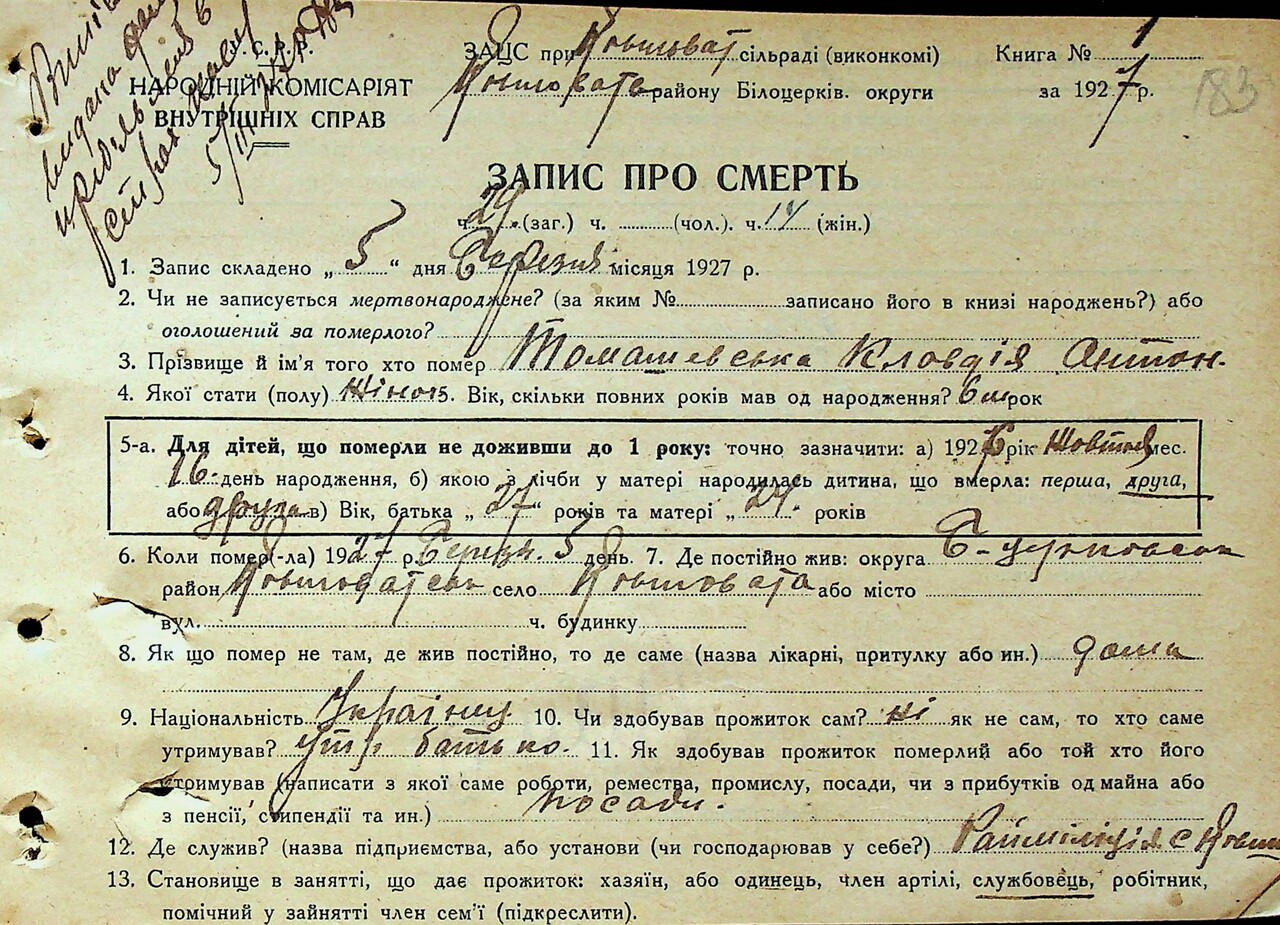 С. Р. Р.
НАРОДНІЙ КОМІСАРІЯТ
ВНУТРІШНІХ СПРАВ
видана
5/III
ЗАЦС при Ковшоват сільраді (виконкомі)
Ковшоватс району Білоцерків. округи
Книга № 1
за 1927 р.
183
ЗАПИС ПРО СМЕРТЬ
ч. 29. (заг.) ч. (чол.) ч. 14 (жін.)
1. Запис складено „ 5 “ дня Березня місяця 1927 р.
2. Чи не записується мертвонароджене? (за яким № записано його в книзі народжень?) або
оголошений за померлого?
3. Прізвище й ім'я того хто помер Томашевська Кловдія Антон.
4. Якої стати (полу) жіноч 5. Вік, скільки повних років мав од народження? 6 м рок
5-а. Для дітей, що померли не доживши до 1 року: точно зазначити: а) 1926 рік Жовтня мес.
16 день народження, б) якою з лічби у матері народилась дитина, що вмерла: перша, друга,
або друга в) Вік, батька „ 27 “ років та матері „ 24. років
6. Коли помер(-ла) 1927 р. Березн. 5 день. 7. Де постійно жив: округа Б-церковськ
район Ковшоватськ село Ковшовата або місто
вул. ч. будинку
8. Як що помер не там, де жив постійно, то де саме (назва лікарні, притулку або ин.) дома
9. Національність Українц. 10. Чи здобував прожиток сам? ні як не сам, то хто саме
утримував? утр батько. 11. Як здобував прожиток померлий або той хто його
утримував (написати з якої саме роботи, ремества, промислу, посади, чи з прибутків од майна або
з пенсії, стипендії та ин.) посади.
12. Де служив? (назва підприємства, або установи (чи господарював у себе?) Райміліція с Ковш
13. Становище в занятті, що дає прожиток: хазяїн, або одинець, член артілі, службовець, робітник,
помічний у зайнятті член сем'ї (підкреслити).